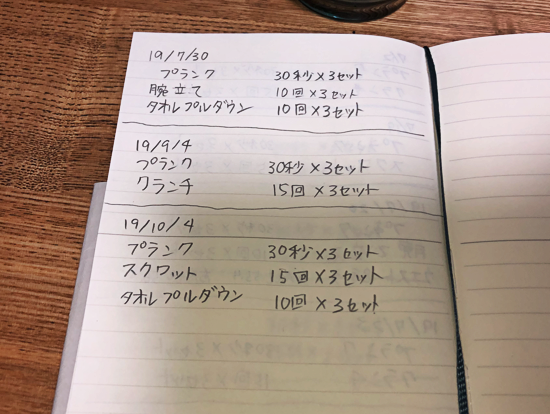 19/7/30
プランク 30秒×3セット
腕立て 10回×3セット
タオルプルダウン 10回×3セット
19/9/4
プランク 30秒×3セット
クランチ 15回×3セット
19/10/4
プランク 30秒×3セット
スクワット 15回×3セット
タオルプルダウン 10回×3セット